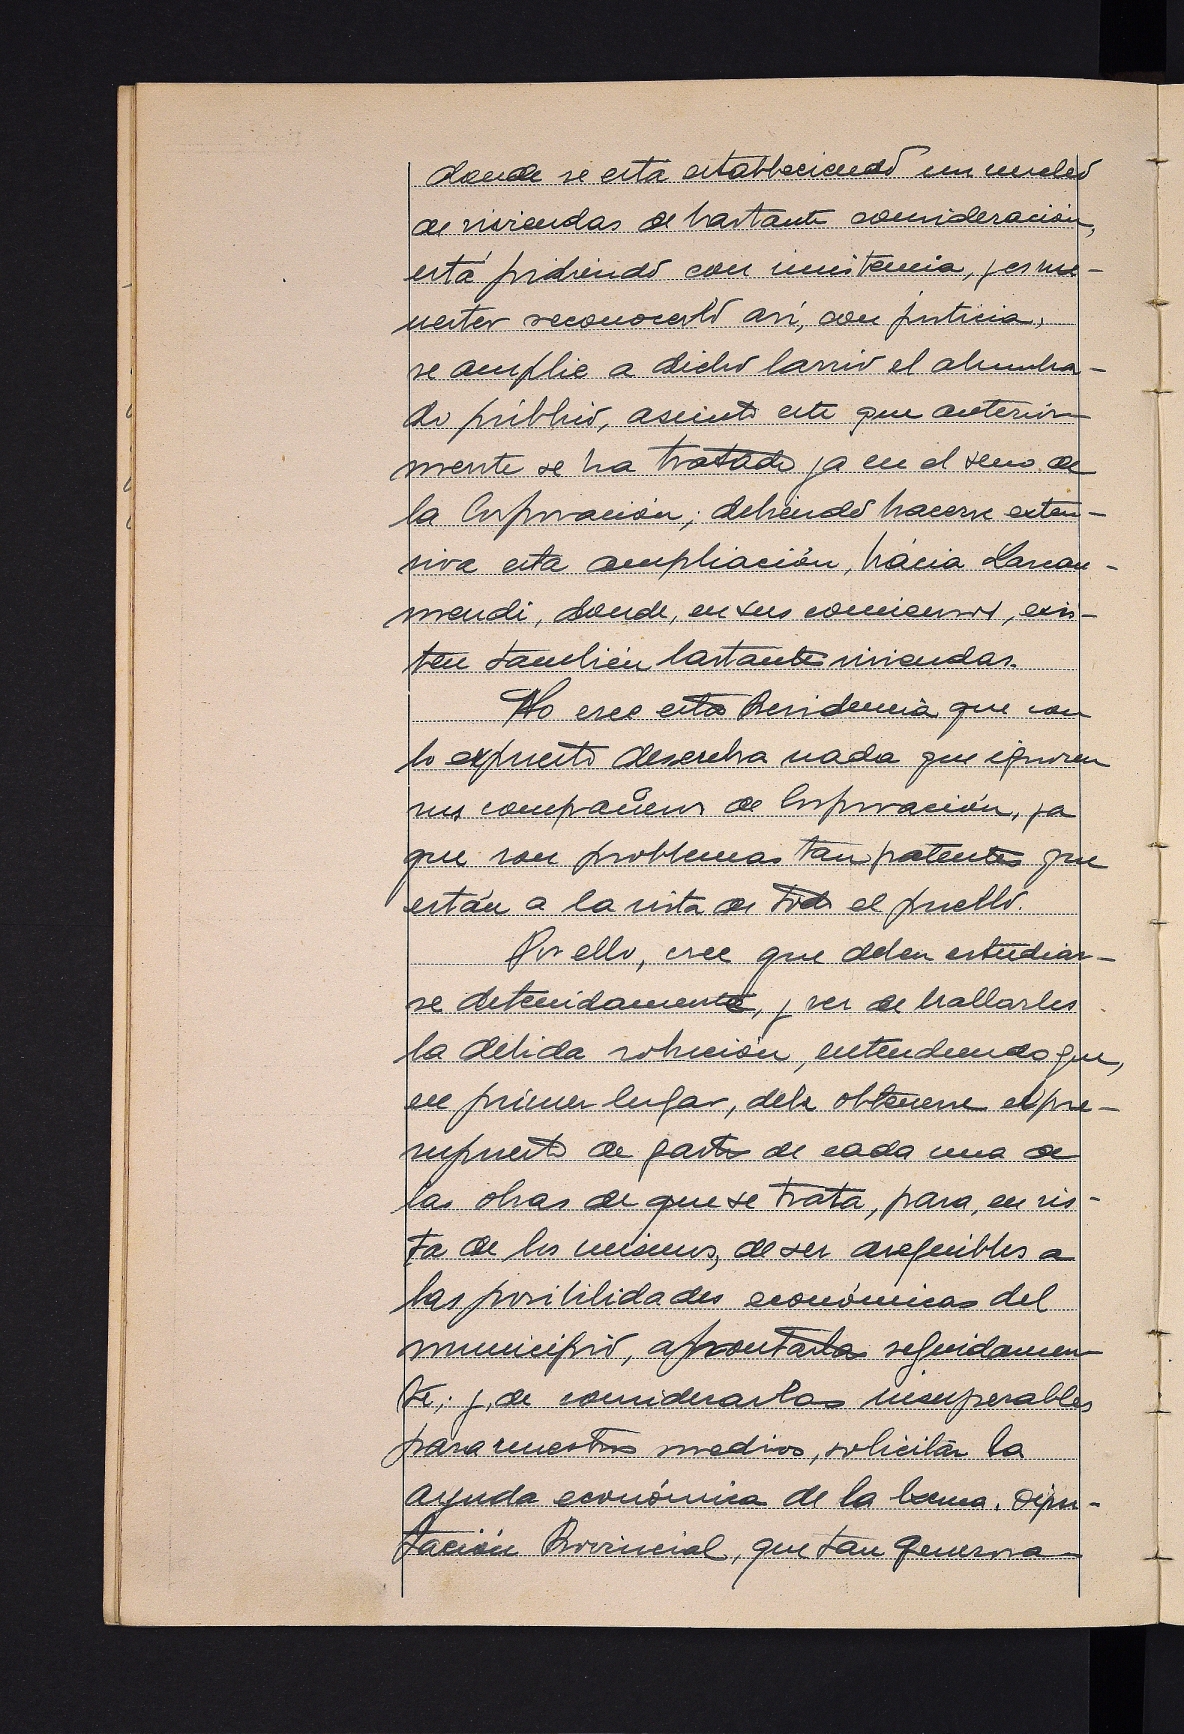 donde se está estableciendo un nucleo
de viviendas de bastante consideración,
está pidiendo con insistencia, y es me-
nester reconocerlo así, con justicia,
se amplie a dicho barrio el alumbra-
do público, asunto este que anterior-
mente se ha tratado ya en el seno de
la Corporación; debiendo hacerse exten-
siva esta ampliación, hácia Larean-
mendi, donde, en sus comienzos, exis-
ten tambien bastantes viviendas.
No cree esta Presidencia que con
lo expuesto descubra nada que ignoren
sus compañeros de Corporación, ya
que son problemas tan patentes que
están a la vista de todo el pueblo.
Por ello, cree que deben estudiar-
se detenidamente, y ver de hallarles
la debida solución, entendiendo que,
en primer lugar, debe obtenerse el pre-
supuesto de gastos de cada una de
las obras de que se trata, para, en vis-
ta de los mismos, de ser asequibles a
las posibilidades económicas del
municipio, afrontarlas seguidamen-
te; y, de considerarlas insuperables
para nuestros medios, solicitar la
ayuda económica de la Excma. Dipu-
tación Provincial, que tan generosa-